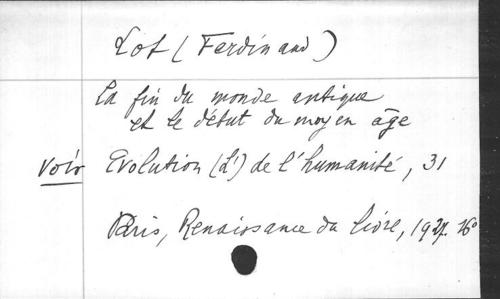 Lot (Ferdinand)
La fin du monde antique
et le début du moyen âge
voir Evolution (L') de l'humanité, 31
Paris, Renaissance du livre, 1927. 16°